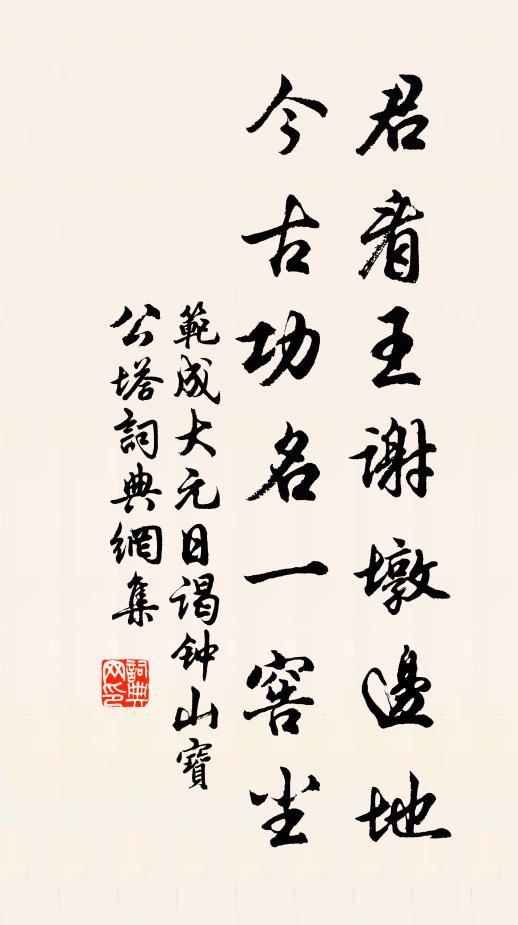 君看王謝墩邊地
今古功名一窖尘
範成大元日谒钟山寶
公塔詞典網集
詞典
网印